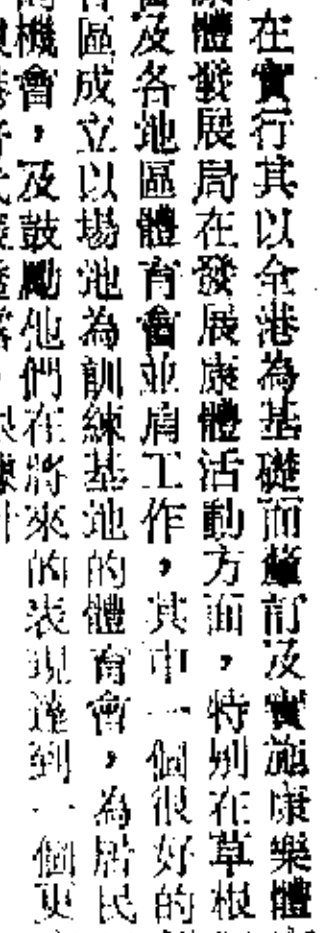 在實行其以全港為基礎而釐訂及實施康樂體
體發展局在發展康體活動方面，特別在草根
及各地區體育會並肩工作，其中一個很好的
區成立以場地為訓練基地的體育會，為居民
機會，及鼓勵他們在將來的表現達到一個更